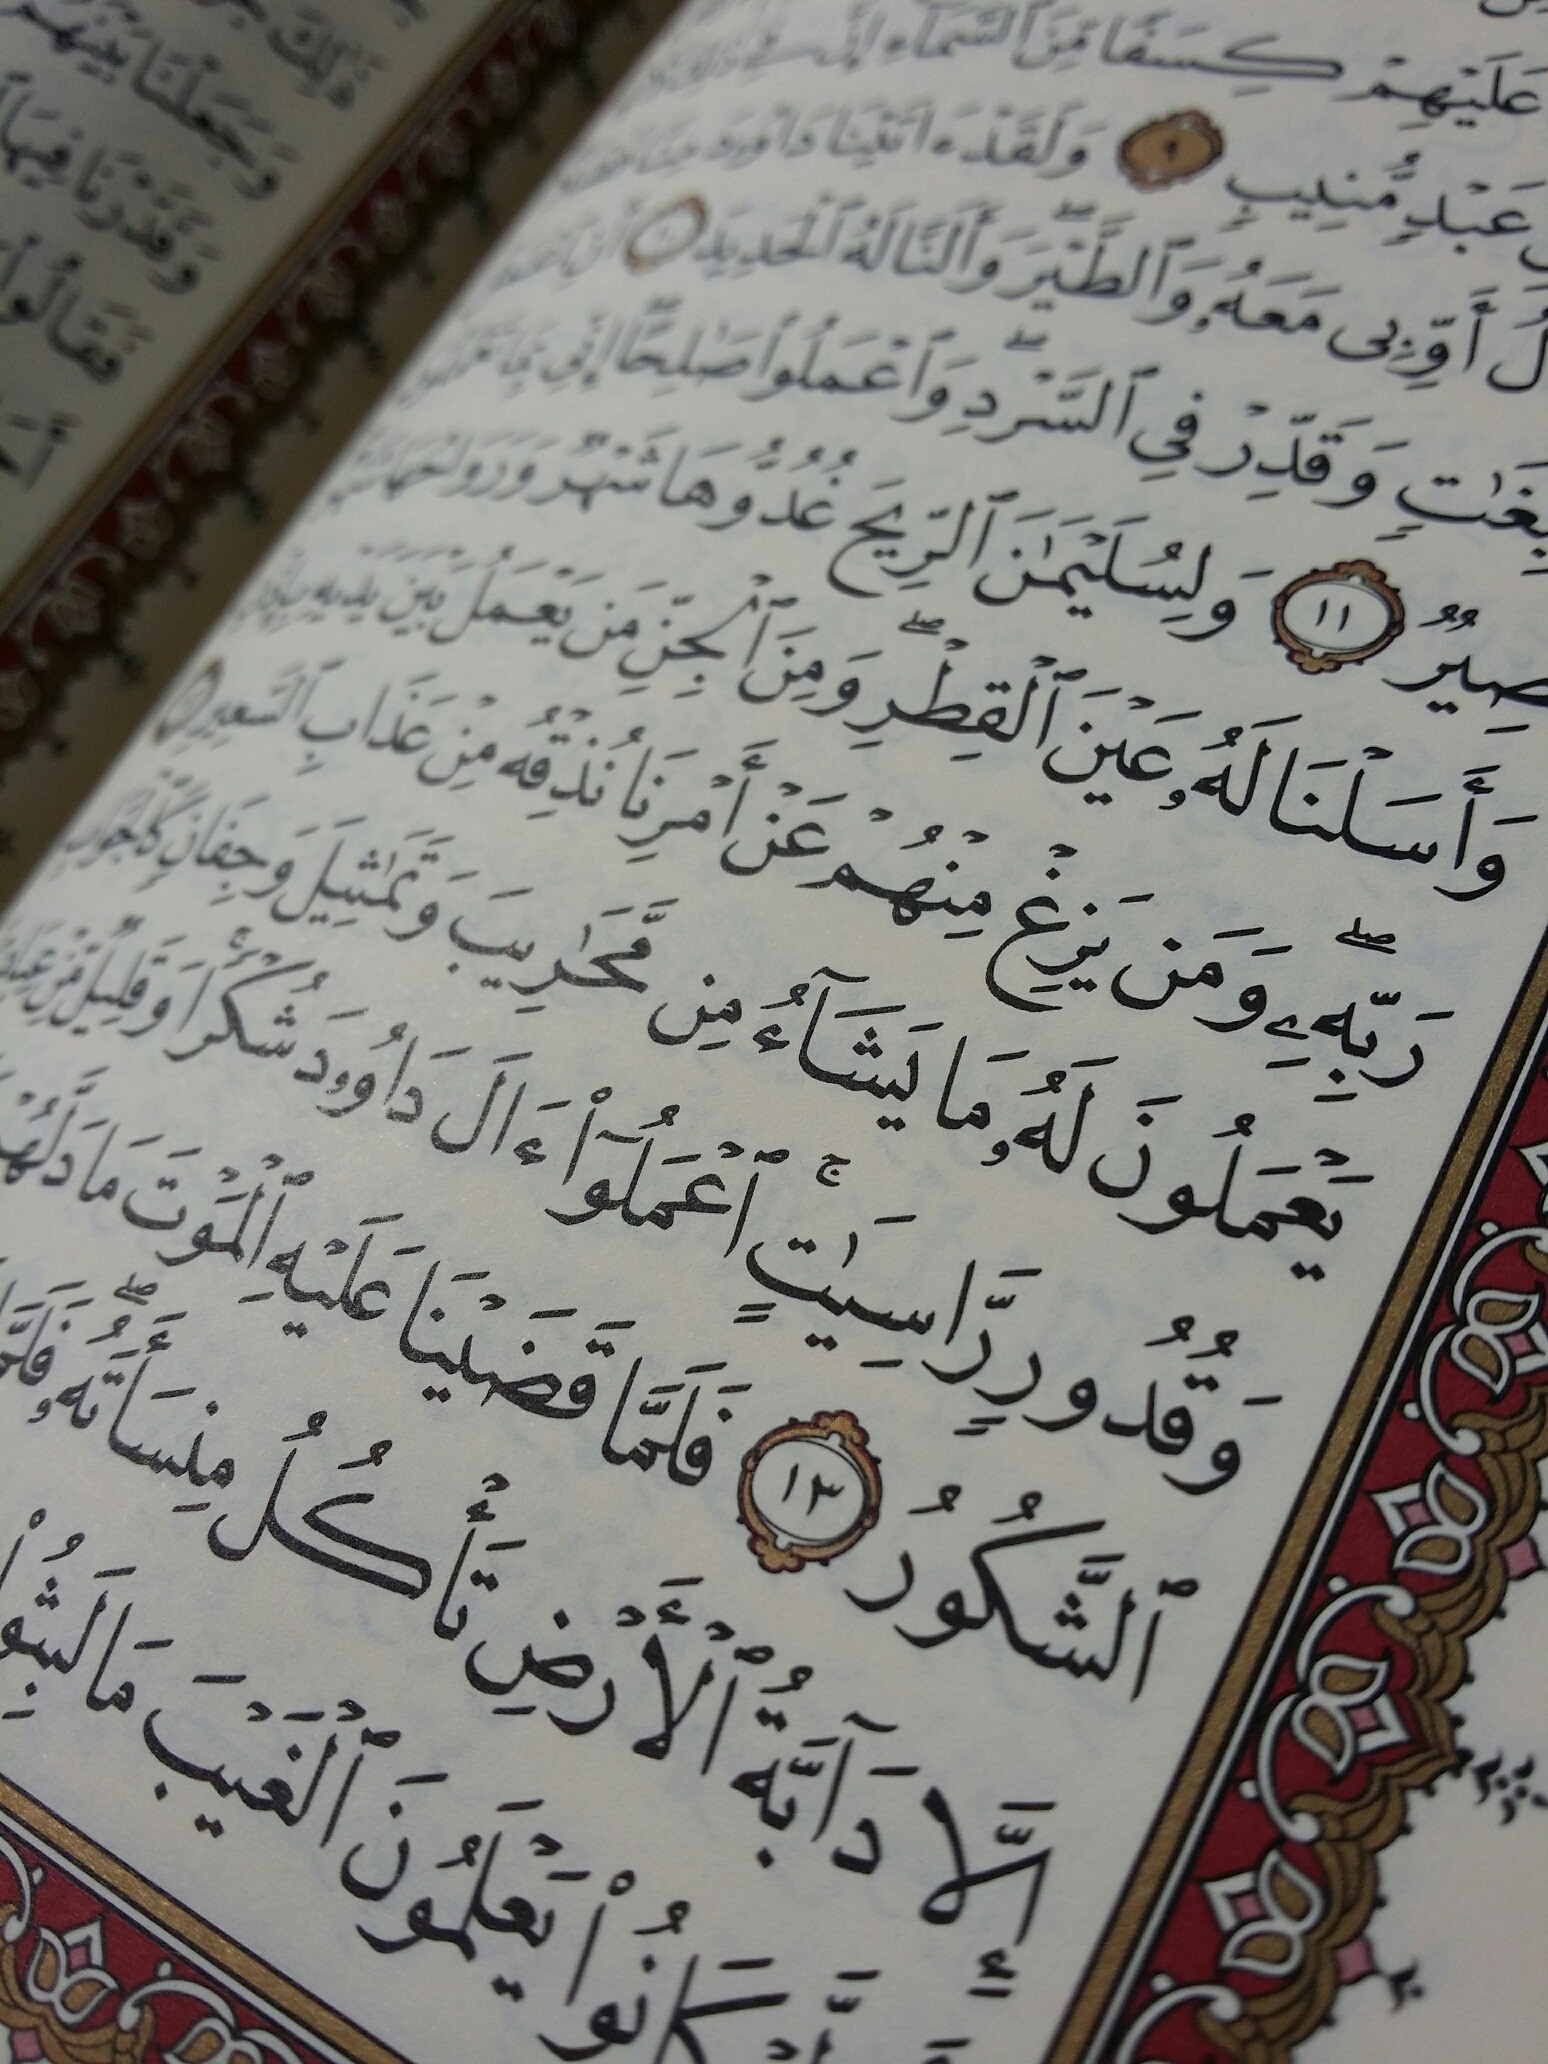 عَلَيْهِمْ كِسَفًا مِّنَ ٱلسَّمَآءِ إِنَّ فِى ذَٰلِكَ
عَبْدٍ مُّنِيبٍ ٩ وَلَقَدْ ءَاتَيْنَا دَاوُۥدَ مِنَّا فَضْلًا
أَوِّبِى مَعَهُۥ وَٱلطَّيْرَ ۖ وَأَلَنَّا لَهُ ٱلْحَدِيدَ ١٠ أَنِ ٱعْمَلْ
وَقَدِّرْ فِى ٱلسَّرْدِ ۖ وَٱعْمَلُوا۟ صَٰلِحًا ۖ إِنِّى بِمَا تَعْمَلُونَ
١١ وَلِسُلَيْمَٰنَ ٱلرِّيحَ غُدُوُّهَا شَهْرٌ وَرَوَاحُهَا شَهْرٌ
وَأَسَلْنَا لَهُۥ عَيْنَ ٱلْقِطْرِ ۖ وَمِنَ ٱلْجِنِّ مَن يَعْمَلُ بَيْنَ يَدَيْهِ بِإِذْنِ
رَبِّهِۦ ۖ وَمَن يَزِغْ مِنْهُمْ عَنْ أَمْرِنَا نُذِقْهُ مِنْ عَذَابِ ٱلسَّعِيرِ
يَعْمَلُونَ لَهُۥ مَا يَشَآءُ مِن مَّحَٰرِيبَ وَتَمَٰثِيلَ وَجِفَانٍ كَٱلْجَوَابِ
وَقُدُورٍ رَّاسِيَٰتٍ ۚ ٱعْمَلُوٓا۟ ءَالَ دَاوُۥدَ شُكْرًا ۚ وَقَلِيلٌ مِّنْ عِبَادِىَ
ٱلشَّكُورُ ١٣ فَلَمَّا قَضَيْنَا عَلَيْهِ ٱلْمَوْتَ مَا دَلَّهُمْ
إِلَّا دَآبَّةُ ٱلْأَرْضِ تَأْكُلُ مِنسَأَتَهُۥ ۖ فَلَمَّا
كَانُوا۟ يَعْلَمُونَ ٱلْغَيْبَ مَا لَبِثُوا۟
ذَٰلِكَ
وَجَعَلْنَا بَيْنَهُمْ
وَقَدَّرْنَا فِيهَا
فَقَالُوا۟